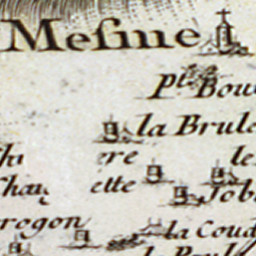 Mesme
pte Bou
la Brule
ere le
Chau ette Job
rogon la Coud